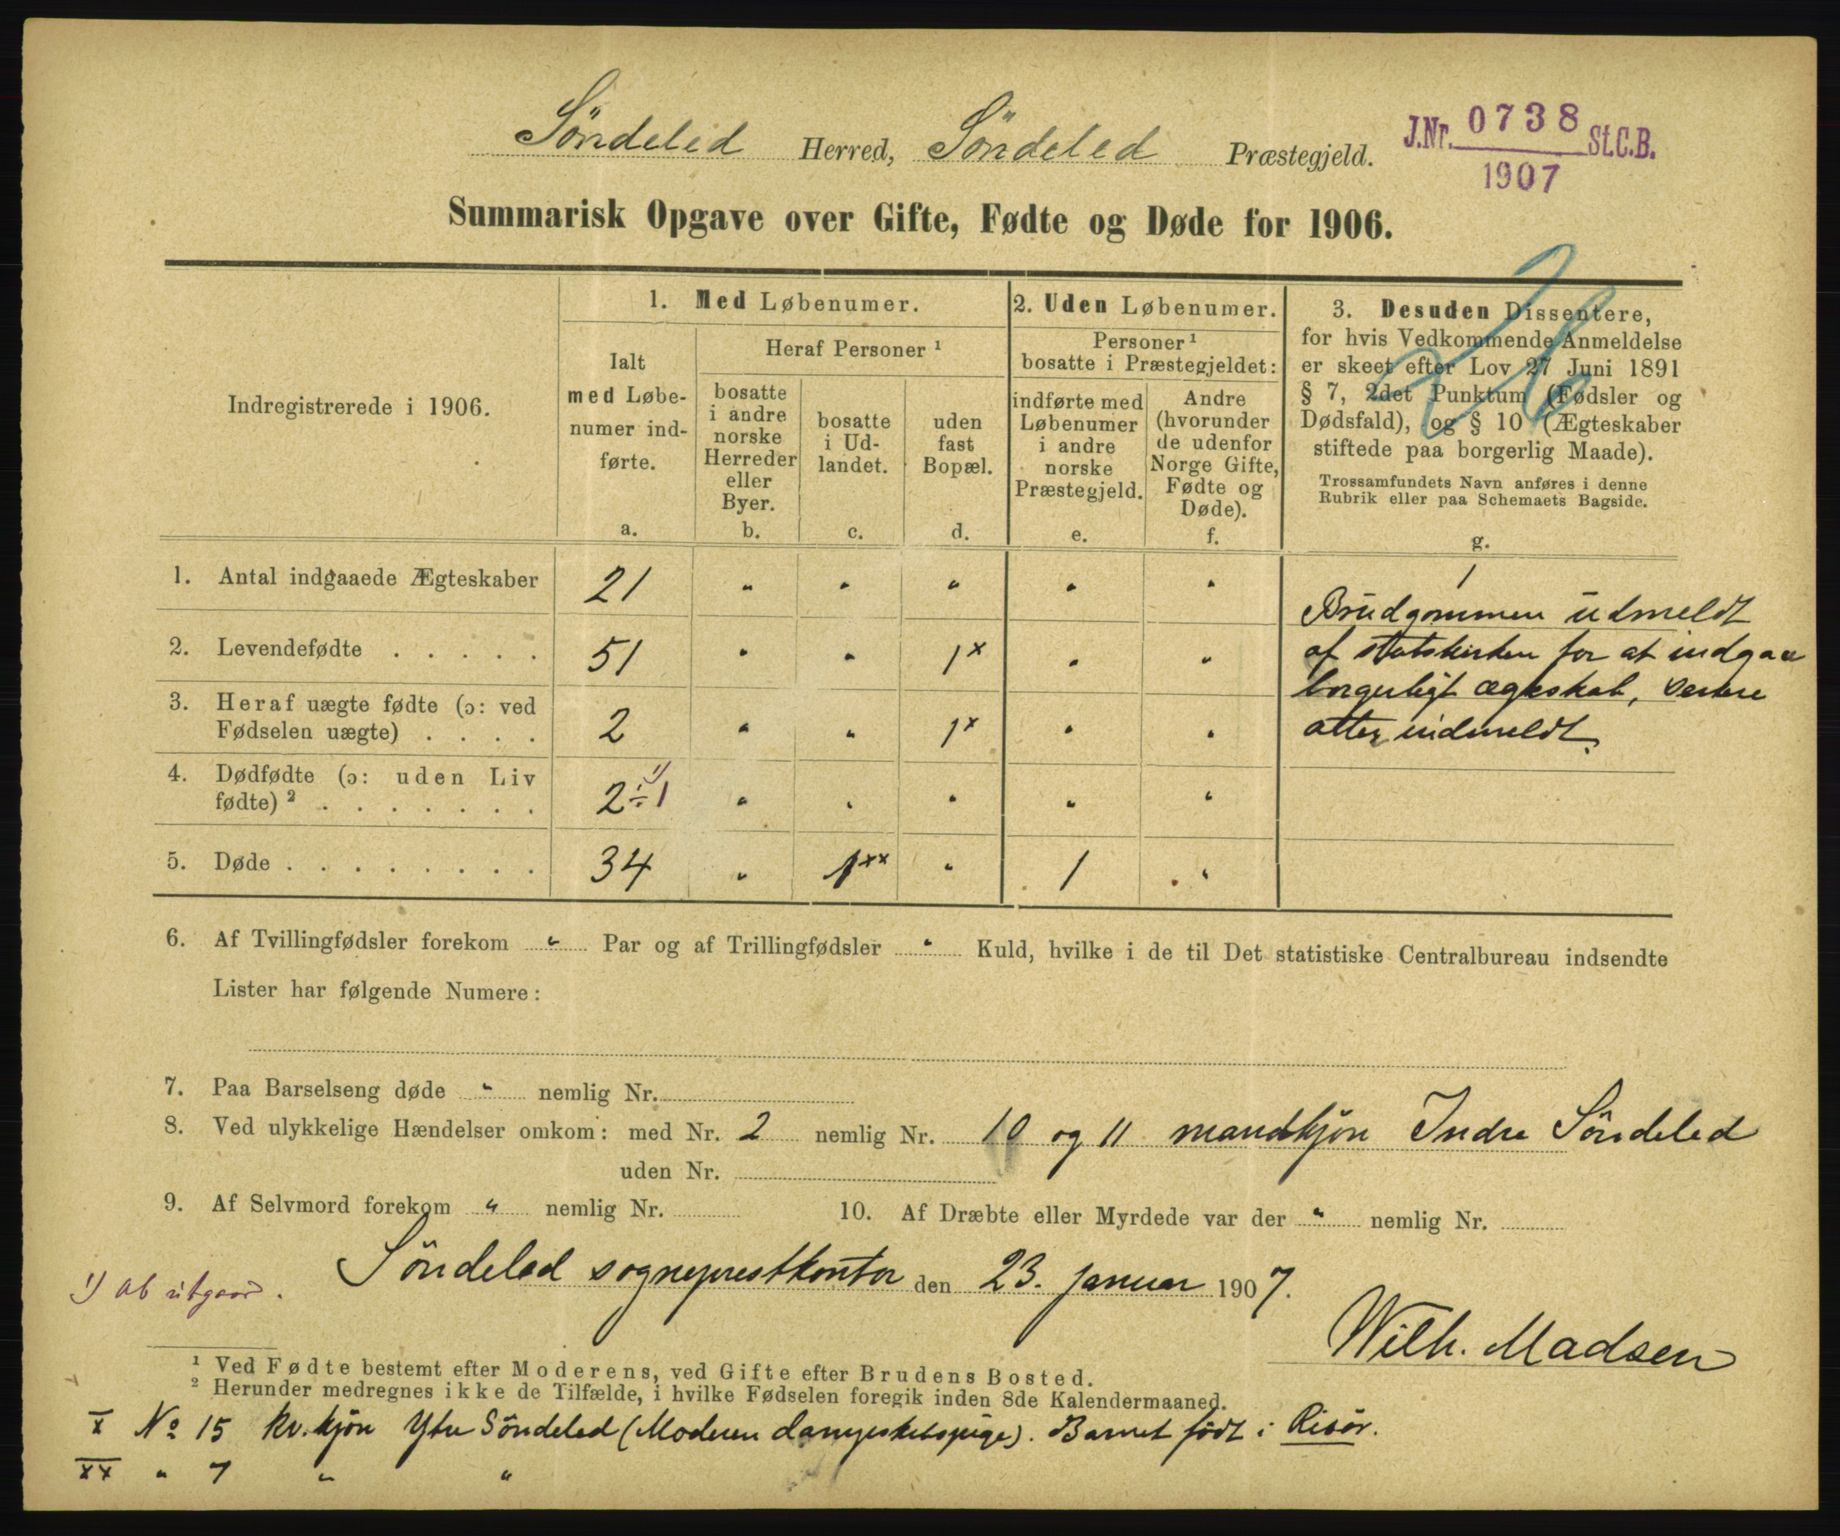 Söndeled Herred, Söndeled Præstegjeld.
J.Nr. 0738 St.C.B.
1907
Summarisk Opgave over Gifte, Fødte og Døde for 1906.
Indregistrerede i 1906.
1. Med Løbenumer.
Ialt
med Løbe-
numer ind-
førte.
a.
Heraf Personer ¹
bosatte
i andre
norske
Herreder
eller
Byer.
b.
bosatte
i Ud-
landet.
c.
uden
fast
Bopæl.
d.
2. Uden Løbenumer.
Personer ¹
bosatte i Præstegjeldet:
indførte med
Løbenumer
i andre
norske
Præstegjeld.
e.
Andre
(hvorunder
de udenfor
Norge Gifte,
Fødte og
Døde).
f.
3. Desuden Dissentere,
for hvis Vedkommende Anmeldelse
er skeet efter Lov 27 Juni 1891
§ 7, 2det Punktum (Fødsler og
Dødsfald), og § 10 (Ægteskaber
stiftede paa borgerlig Maade).
Trossamfundets Navn anføres i denne
Rubrik eller paa Schemaets Bagside.
g.
1. Antal indgaaede Ægteskaber 21 " " " " " 1
2. Levendefødte . . . . . 51 " " 1 x " "
3. Heraf uægte fødte (ɔ: ved
Fødselen uægte) . . . . 2 " " 1 x " "
4. Dødfødte (ɔ: uden Liv
fødte) ² . . . . . . . 2 ÷ 1 ¹) " " " " "
5. Døde . . . . . . . . 34 " 1 xx " 1 "
Brudgommen udmeldt
af statskirken for at indgaa
borgerligt ægteskab, senere
atter indmeldt.
6. Af Tvillingfødsler forekom " Par og af Trillingfødsler " Kuld, hvilke i de til Det statistiske Centralbureau indsendte
Lister har følgende Numere:
7. Paa Barselseng døde " nemlig Nr.
8. Ved ulykkelige Hændelser omkom: med Nr. 2 nemlig Nr. 10 og 11 mandkjön Indre Söndeled
uden Nr.
9. Af Selvmord forekom " nemlig Nr. 10. Af Dræbte eller Myrdede var der " nemlig Nr.
Söndeled sogneprestkontor den 23. januar 1907.
¹) ab utgaar.
Wilh. Madsen
¹ Ved Fødte bestemt efter Moderens, ved Gifte efter Brudens Bosted.
² Herunder medregnes ikke de Tilfælde, i hvilke Fødselen foregik inden 8de Kalendermaaned.
x No 15 kv.kjön Ytre Söndeled (Moderen dampskibspige). Barnet födt i Risör.
xx " 7 " "